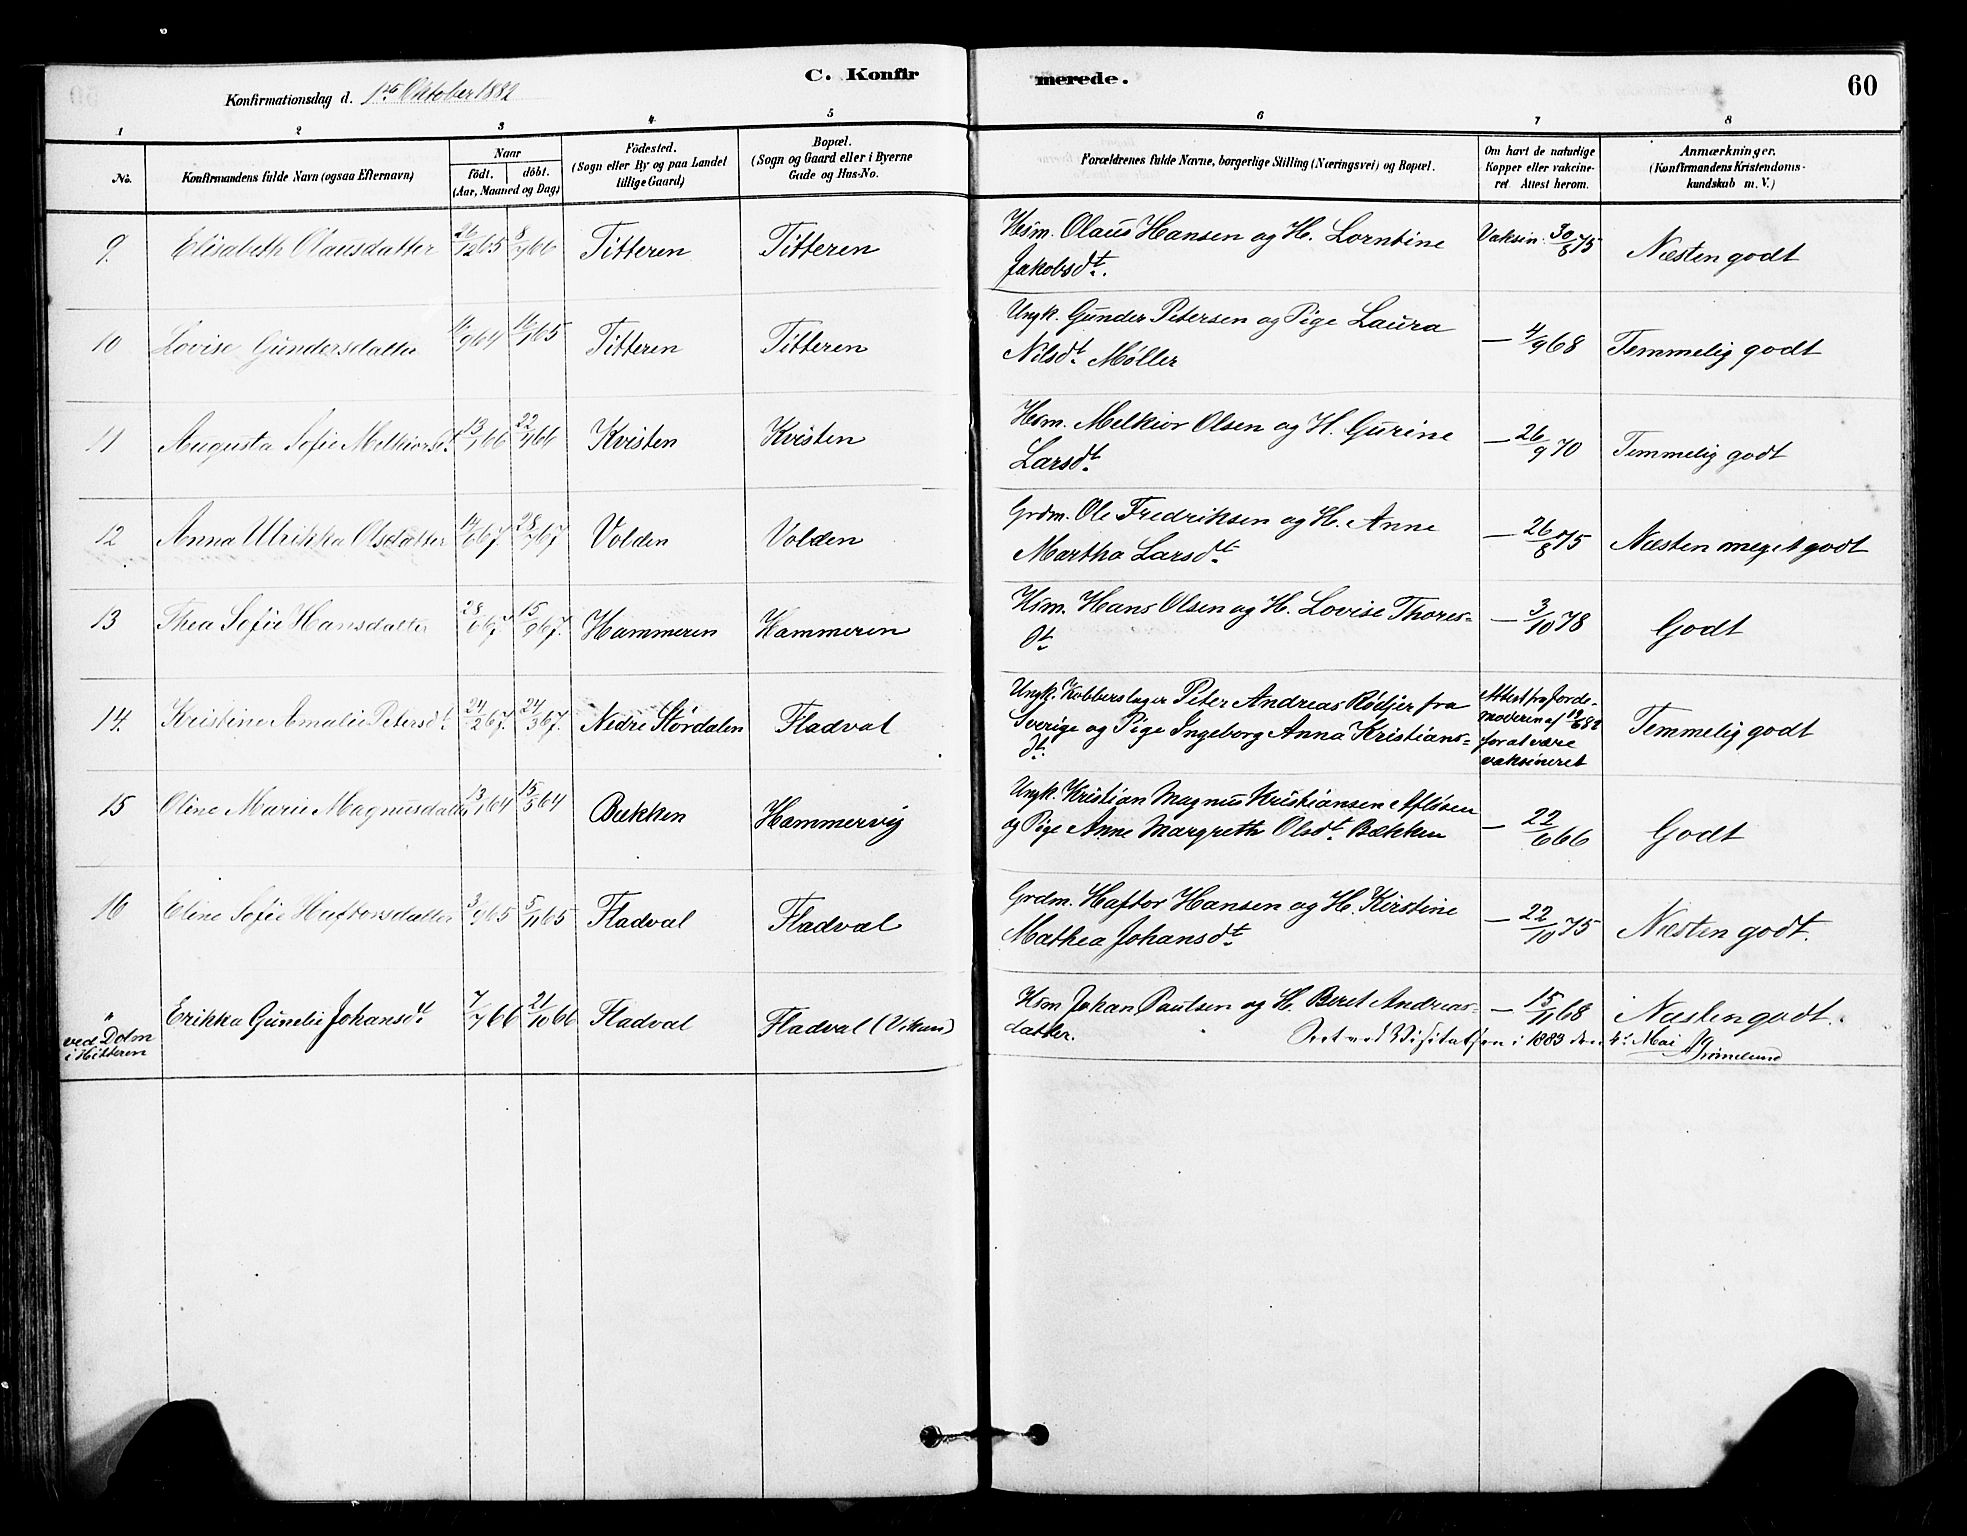 C. Konfirmerede.
60
Konfirmationsdag d. 1ste Oktober 1882
1 2 3 4 5 6 7 8
No.
Konfirmandens fulde Navn (ogsaa Efternavn)
Naar
födt. döbt.
(Aar, Maaned og Dag)
Födested.
(Sogn eller By og paa Landet
tillige Gaard)
Bopæl.
(Sogn og Gaard eller i Byerne
Gade og Hus-No.
Forældrenes fulde Navne, borgerlige Stilling (Næringsvei) og Bopæl.
Om havt de naturlige
Kopper eller vakcine-
ret. Attest herom.
Anmærkninger,
(Konfirmandens Kristendoms-
kundskab m. V.)
9. Elisabeth Olausdatter 26/12 65 8/7 66 Titteren Titteren Hsm. Olaus Hansen og H. Lorntine Vaksin. 30/8 75 Næsten godt
Jakobsdt.
10 Lovise Gundersdatter 11/9 64 16/7 65 Titteren Titteren Ungk. Gunder Petersen og Pige Laura — 4/9 68 Temmelig godt
Nilsdt. Møller
11 Augusta Sofie Melkiorsdt. 13/1 66 22/4 66 Kvisten Kvisten Hsm. Melkior Olsen og H. Gurine — 26/9 70 Temmelig godt
Larsdt.
12 Anna Ulrikka Olsdatter 14/6 67. 28/7 67 Volden Volden Grdm. Ole Fredriksen og H. Anne — 26/8 75 Næsten meget godt
Martha Larsdt.
13 Thea Sofie Hansdatter 28/6 67 15/9 67. Hammeren Hammeren Hsm. Hans Olsen og H. Lovise Thores- — 3/10 78 Godt
dt.
14. Kristine Amalie Petersdt. 24/2 67. 24/3 67. Nedre Størdalen Fladval Ungk. Kobberslager Peter Andreas Rødjer fra Attest fra Jorde- Temmelig godt
Sverige og Pige Ingeborg Anna Kristians- moderen af 19/6 82
dt. for at være
vaksineret
15 Oline Marie Magnusdatter 13/1 64 15/5 64 Bækken Hammervig Ungk. Kristian Magnus Kristiansen Afløsen — 22/6 66 Godt
og Pige Anne Margreth Olsdt. Bækken
16 Eline Sofie Haftorsdatter 3/9 65 5/11 65 Fladval Fladval Grdm. Haftor Hansen og H. Kirstine — 22/10 75 Næsten godt.
Mathea Johansdt.
" Erikka Gunelie Johansdt. 7/7 66 21/10 66 Fladval Fladval (Vikun) Hsm Johan Paulsen og H. Beret Andreas- — 15/11 68 Næsten godt.
ved Dolm datter. Seet ved Visitatsen i 1883 den 4. Mai
i Hitteren